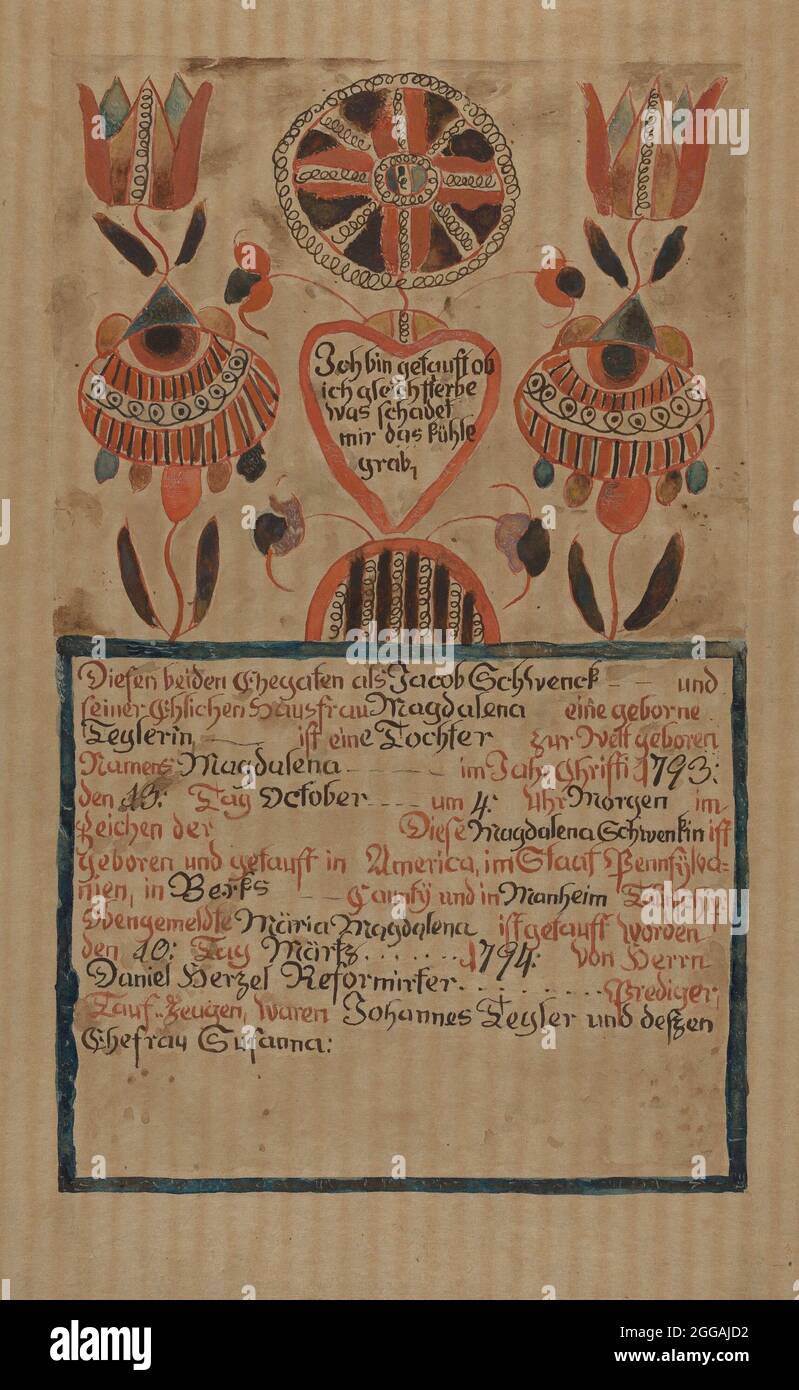 Ich bin getauft ob
ich gleich sterbe
was schadet
mir das kühle
grab,
Diesen beiden Ehegaten als Jacob Schwenck - - und
seiner Ehlichen Hausfrau Magdalena eine geborne
Teylerin, ist eine Tochter zur Welt geboren
Namens Magdalena - - - - im Jahr Christi 1793:
den 13: Tag October - - - um 4: Uhr Morgen im
Zeichen der Diese Magdalena Schwenkin ist
geboren und getauft in America, im Staat Pennsylva=
nien, in Berks - - County und in Manheim
Obengemeldte Maria Magdalena ist getauft worden
den 10: Tag Märtz . . . . . . 1794: von Herrn
Daniel Herzel Reformirter . . . . . . . . . Prediger,
Tauf-Zeugen, waren Johannes Teyler und deszen
Ehefrau Susanna:
alamy
alamy
Image ID: 2GGAJD2
www.alamy.com